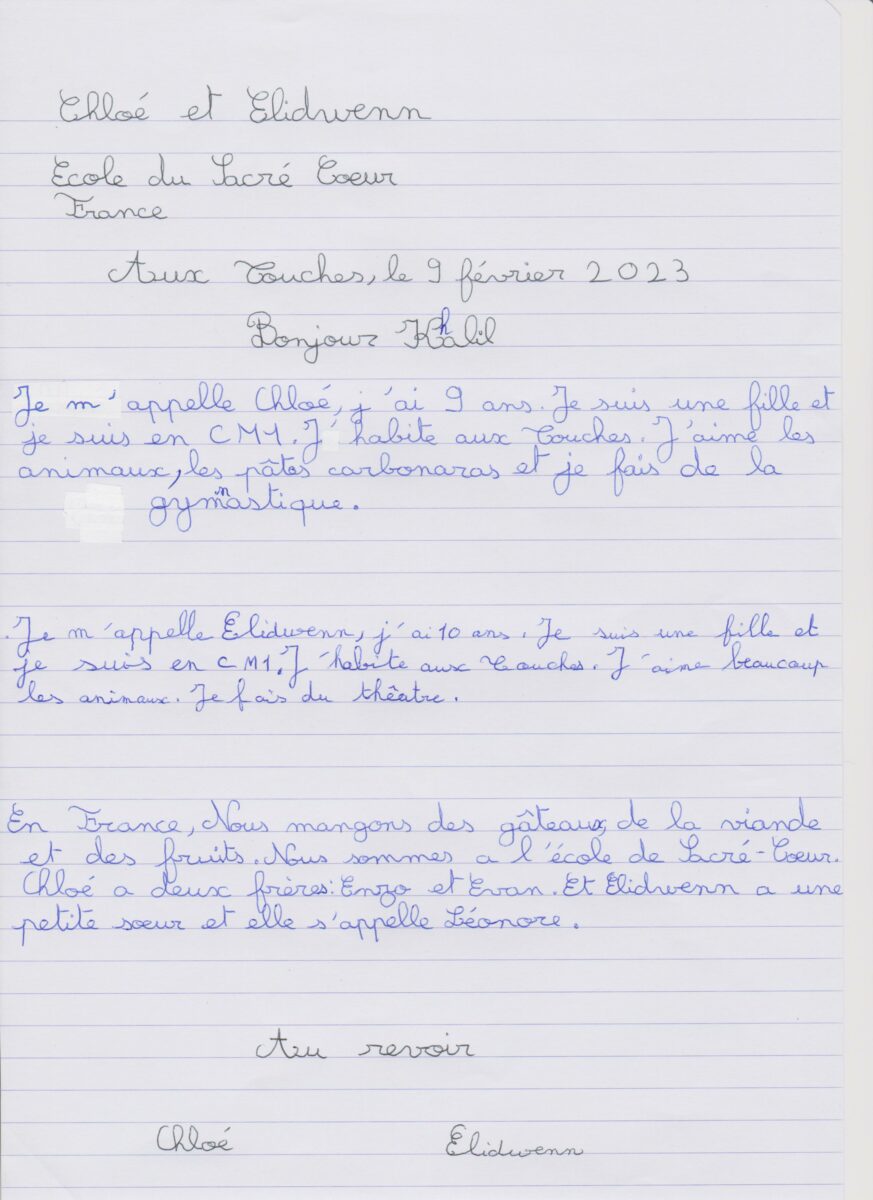 Chloé et Elidwenn
Ecole du Sacré Coeur
France
Aux Touches, le 9 février 2023
Bonjour Khalil
Je m'appelle Chloé, j'ai 9 ans. Je suis une fille et
je suis en CM1. J'habite aux Touches. J'aime les
animaux, les pâtes carbonaras et je fais de la
gymnastique.
Je m'appelle Elidwenn, j'ai 10 ans. Je suis une fille et
je suis en CM1. J'habite aux Touches. J'aime beaucoup
les animaux. Je fais du thêatre.
En France, Nous mangons des gâteaux, de la viande
et des fruits. Nous sommes a l'école de Sacré-Coeur.
Chloé a deux frères: Enzo et Evan. Et Elidwenn a une
petite soeur et elle s'appelle Léonore.
Au revoir
Chloé Elidwenn